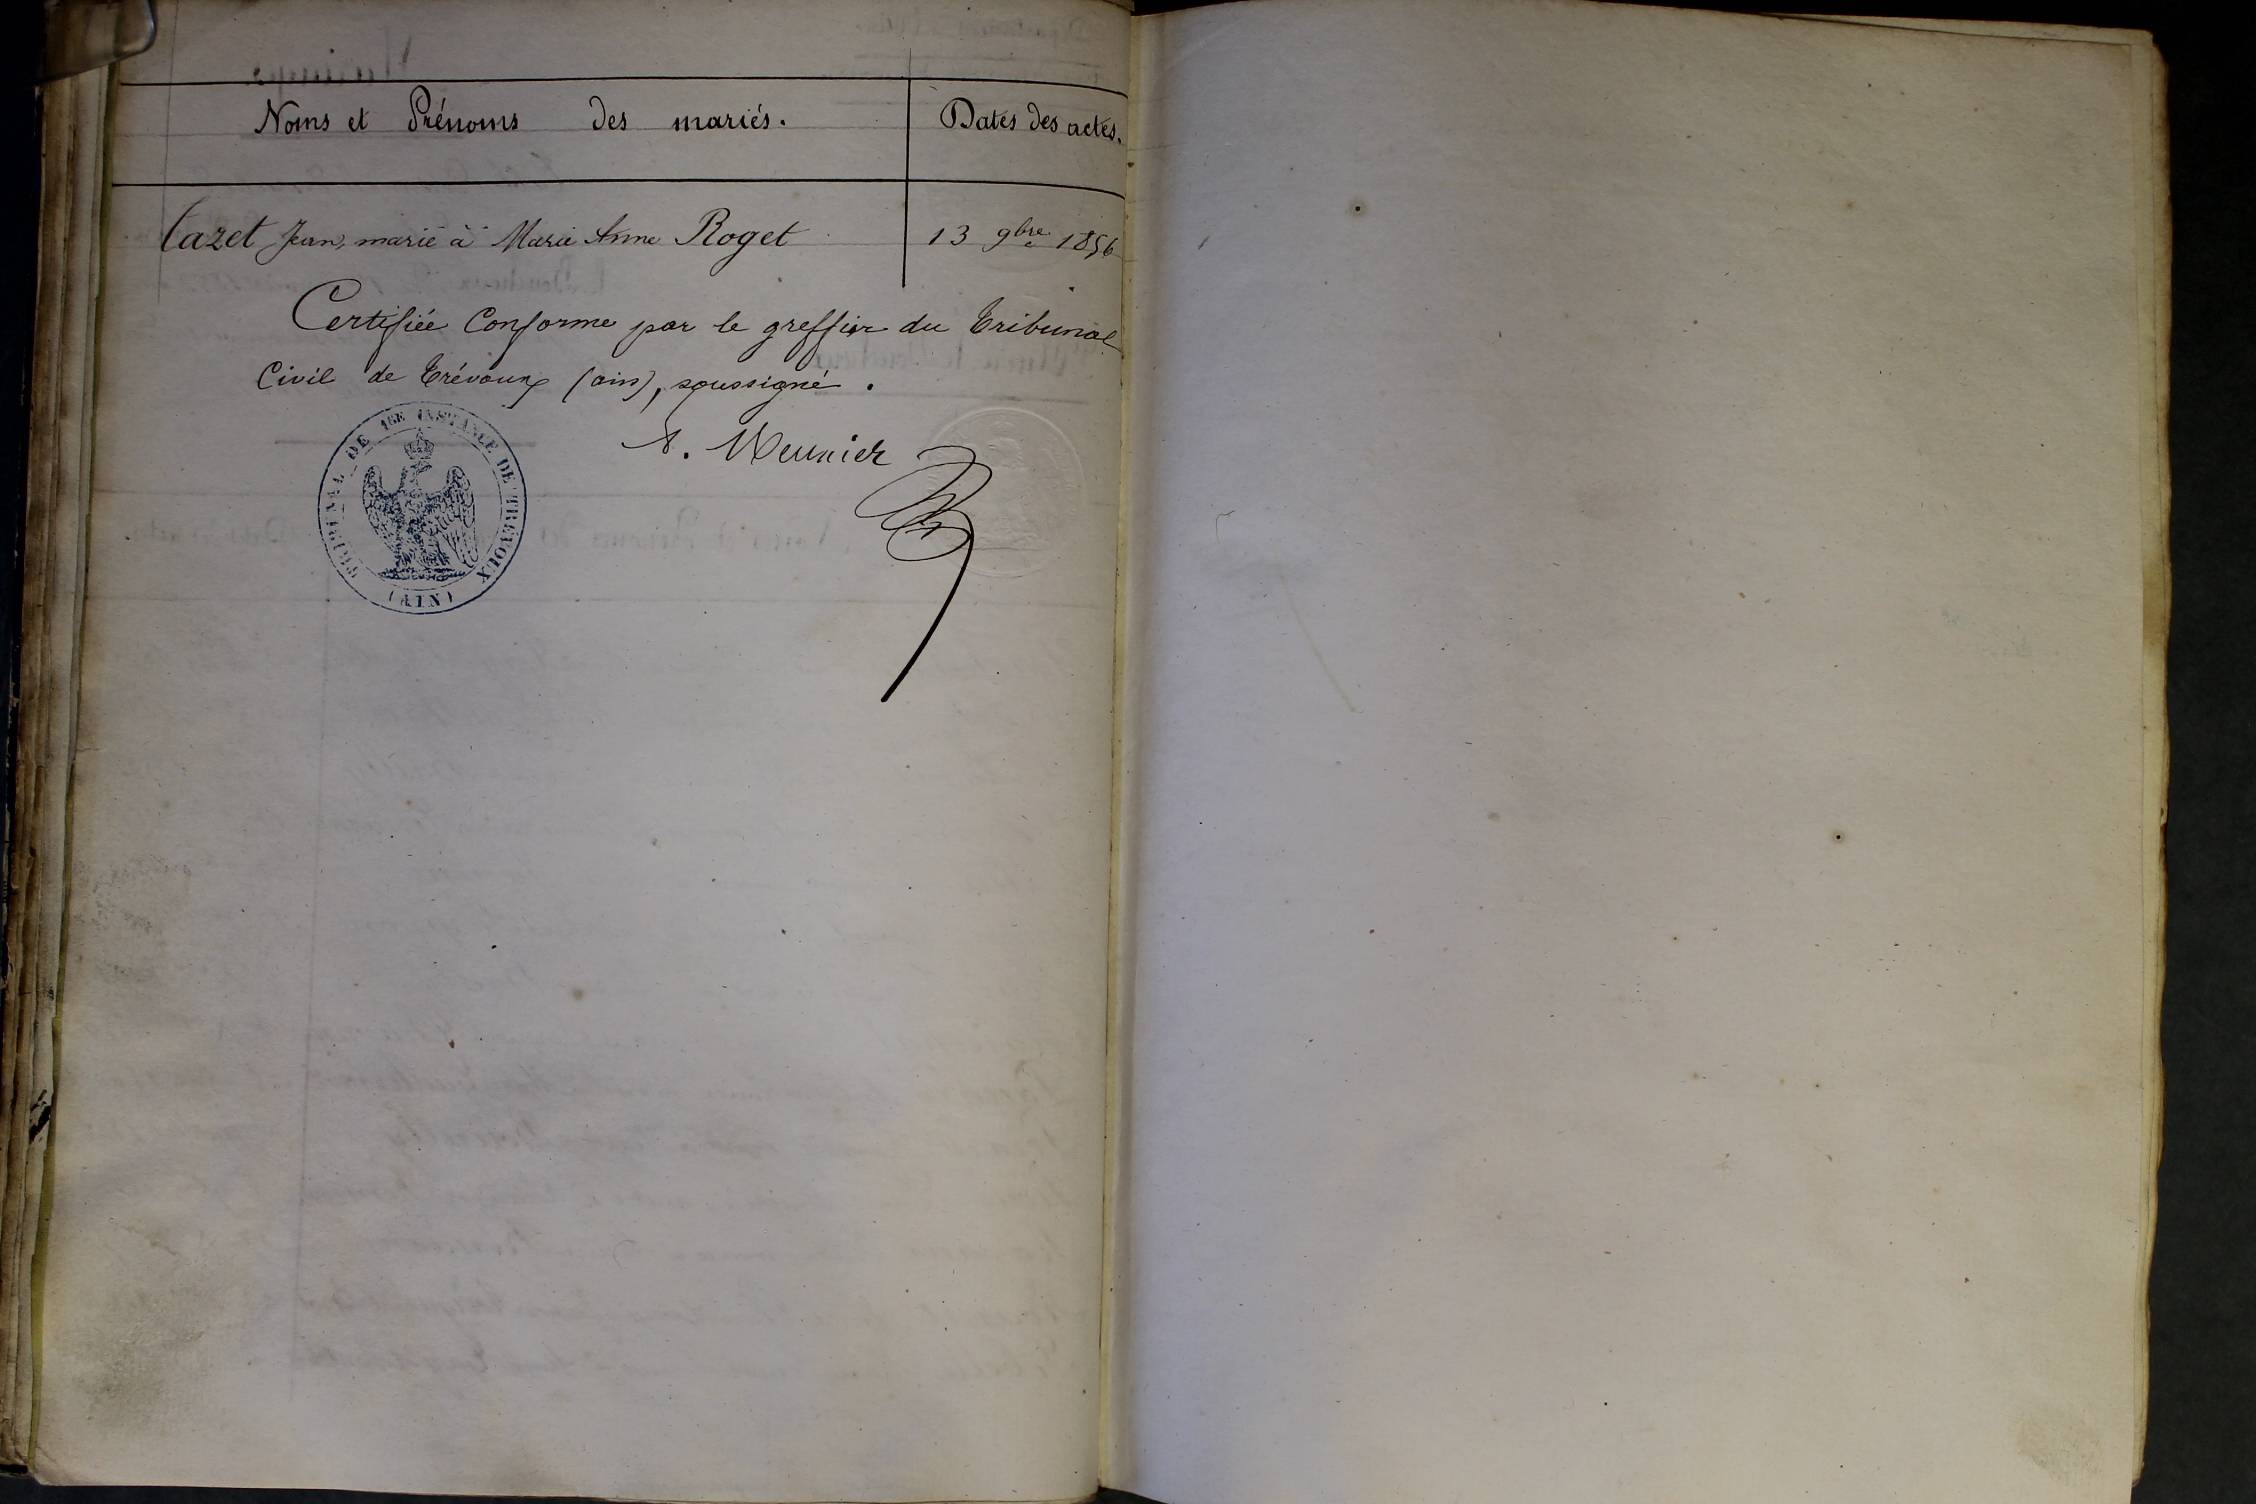 Noms et Prénoms des mariés. Dates des actes.
Tazet Jean, marié à Marie Anne Roget 13 9bre 1856
Certifiée Conforme par le greffier du Tribunal
Civil de Trévoux (ain), soussigné.
A. Meunier
TRIBUNAL DE 1ERE INSTANCE DE TREVOUX
(AIN)